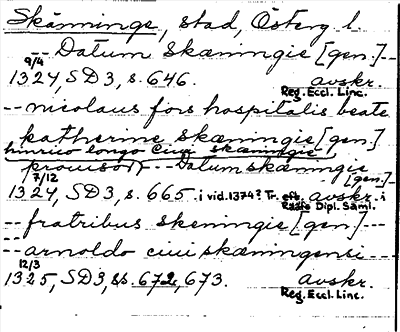 Skänninge, stad, Österg. l.
-- Datum skæningie [gen.] --
9/4
1324, SD3, s. 646. avskr.
Reg. Eccl. Linc.
-- nicolaus fors hospitalis beate
katherine skæningie [gen.]
hinrico longo ciui skæningie
prouisor -- Datum skæningie
[gen.] --
7/12
1324, SD3, s. 665. i vid. 1374? Tr. eft. avskr. i
Rääfs Dipl. Saml.
-- fratribus skeningie [gen.] --
-- arnoldo ciui skæningensi --
12/3
1325, SD3, ss. 672, 673. avskr.
Reg. Eccl. Linc.